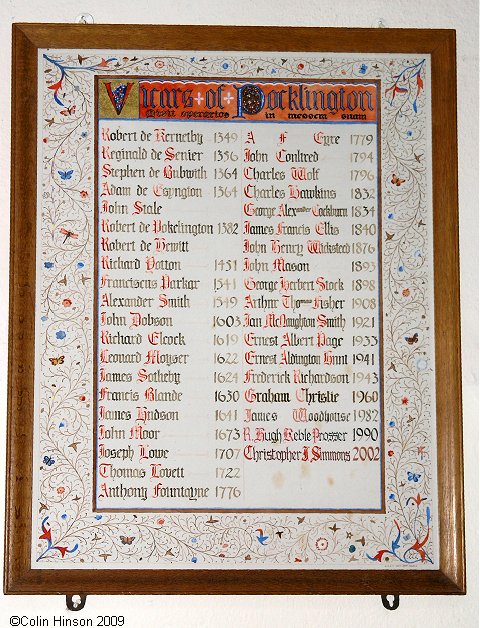 Vicars of Pocklington
Robert de Kernetby 1349
Reginald de Senier 1356
Stephen de Bubwith 1364
Adam de Espngton 1364
John Stale
Robert de Pokelington 1382
Robert de Hewitt
Richard Potton 1451
Franciscus Parkar 1541
Alexander Smith 1549
John Dobson 1603
Richard Elcock 1619
Leonard Moyser 1622
James Sotheby 1624
Francis Blande 1630
James Hudson 1641
John Moor 1673
Joseph Lowe 1707
Thomas Lovett 1722
Anthony Fountayne 1776
A F Eyre 1779
John Coultred 1794
Charles Wolf 1796
Charles Hawkins 1832
George Alexander Cockburn 1834
James Francis Ellis 1840
John Henry Wicksteed 1876
John Mason 1893
George Herbert Stock 1898
Arthur Thomas Fisher 1908
Ian McNaughton Smith 1921
Ernest Albert Page 1933
Ernest Aldington Hunt 1941
Frederick Richardson 1943
Graham Christie 1960
James Woodhouse 1982
R. Hugh Keble Prosser 1990
Christopher J Simmons 2002
©Colin Hinson 2009